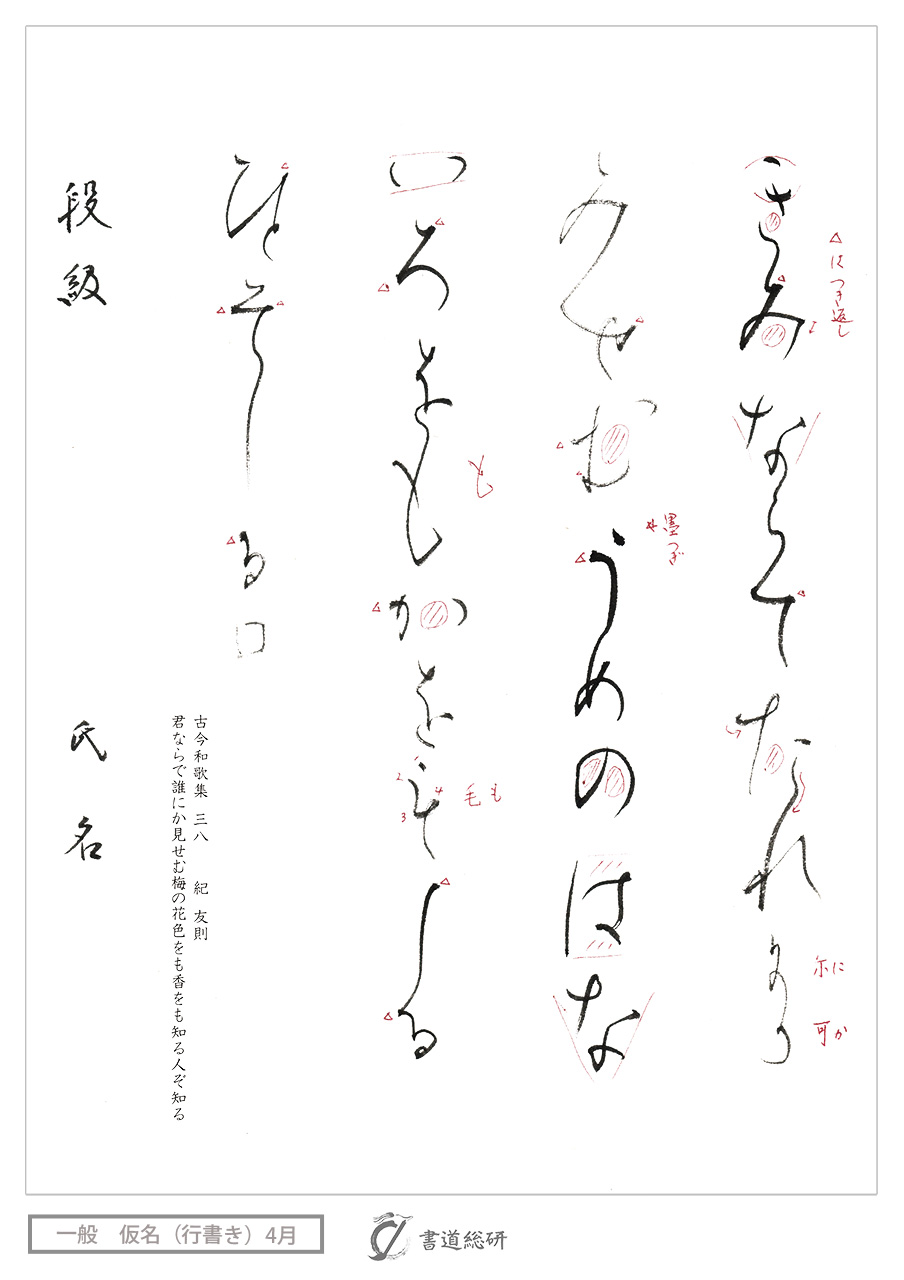 きみならてたれ尓可
みせむうめのはな
いろをもかを毛しる
ひとそしる
△はつき返し
尓に
可か
墨つぎ
も
毛も
2
3
4
古今和歌集 三八 紀 友則
君ならで誰にか見せむ梅の花色をも香をも知る人ぞ知る
段級
氏名
一般 仮名（行書き）4月
書道総研